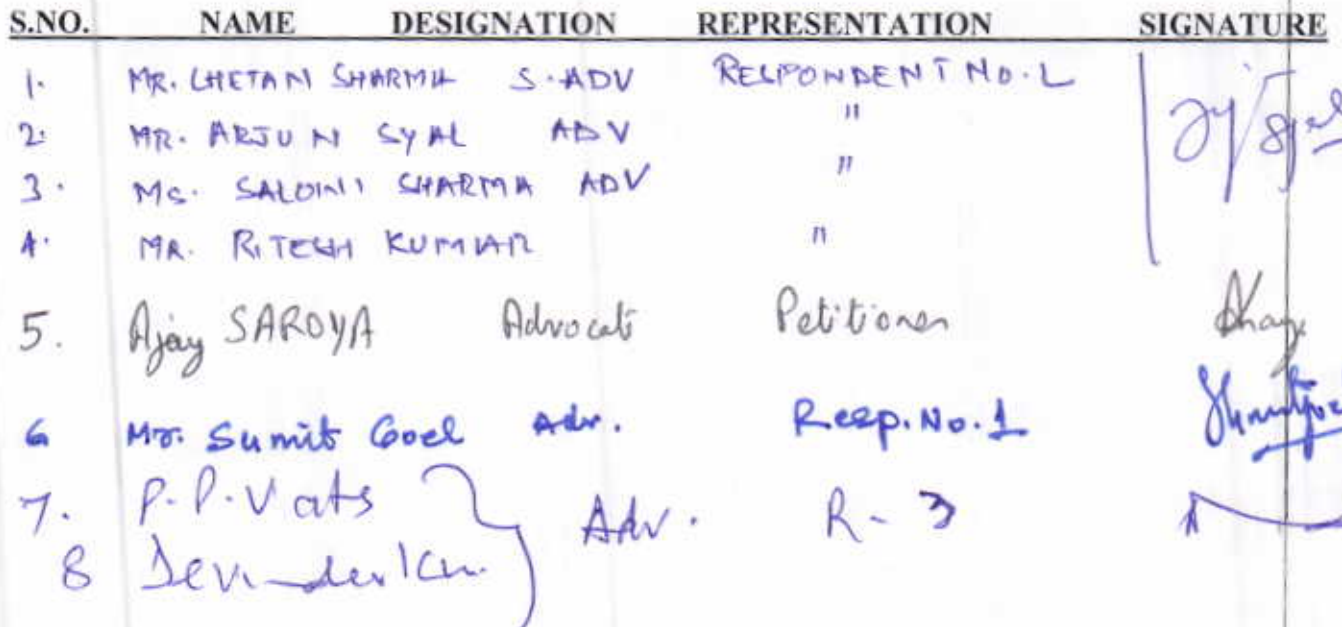 S.NO. NAME DESIGNATION REPRESENTATION SIGNATURE
1. MR. CHETAN SHARMA S.ADV RESPONDENT NO.
2. MR. ARJUN SYAL ADV "
3. MS. SALONI SHARMA ADV "
4. MR. RITESH KUMAR "
5. Ajay SAROYA Advocate Petitioner
6 Mr. Sumit Goel Adv. Resp. No. 1
7. P.P. Vats Adv. R-3
8 Devinder Km.